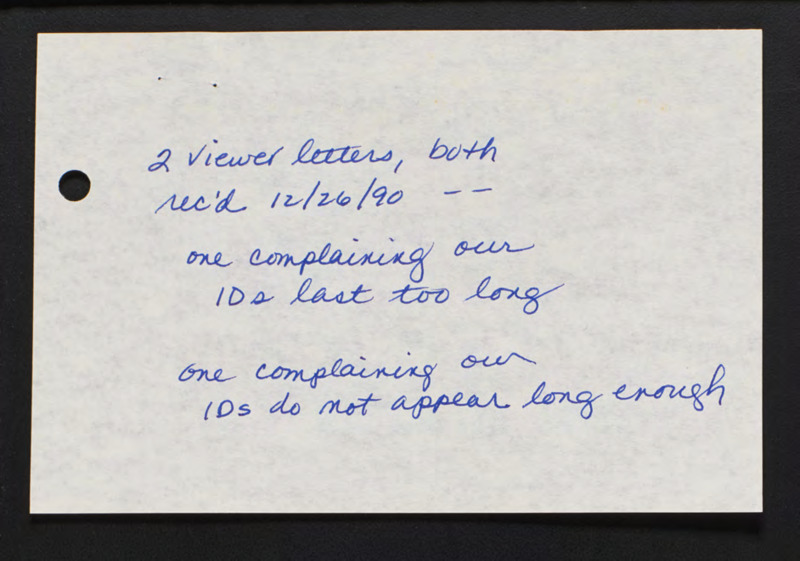 2 viewer letters, both
rec'd 12/26/90 --
one complaining our
IDs last too long
one complaining our
IDs do not appear long enough